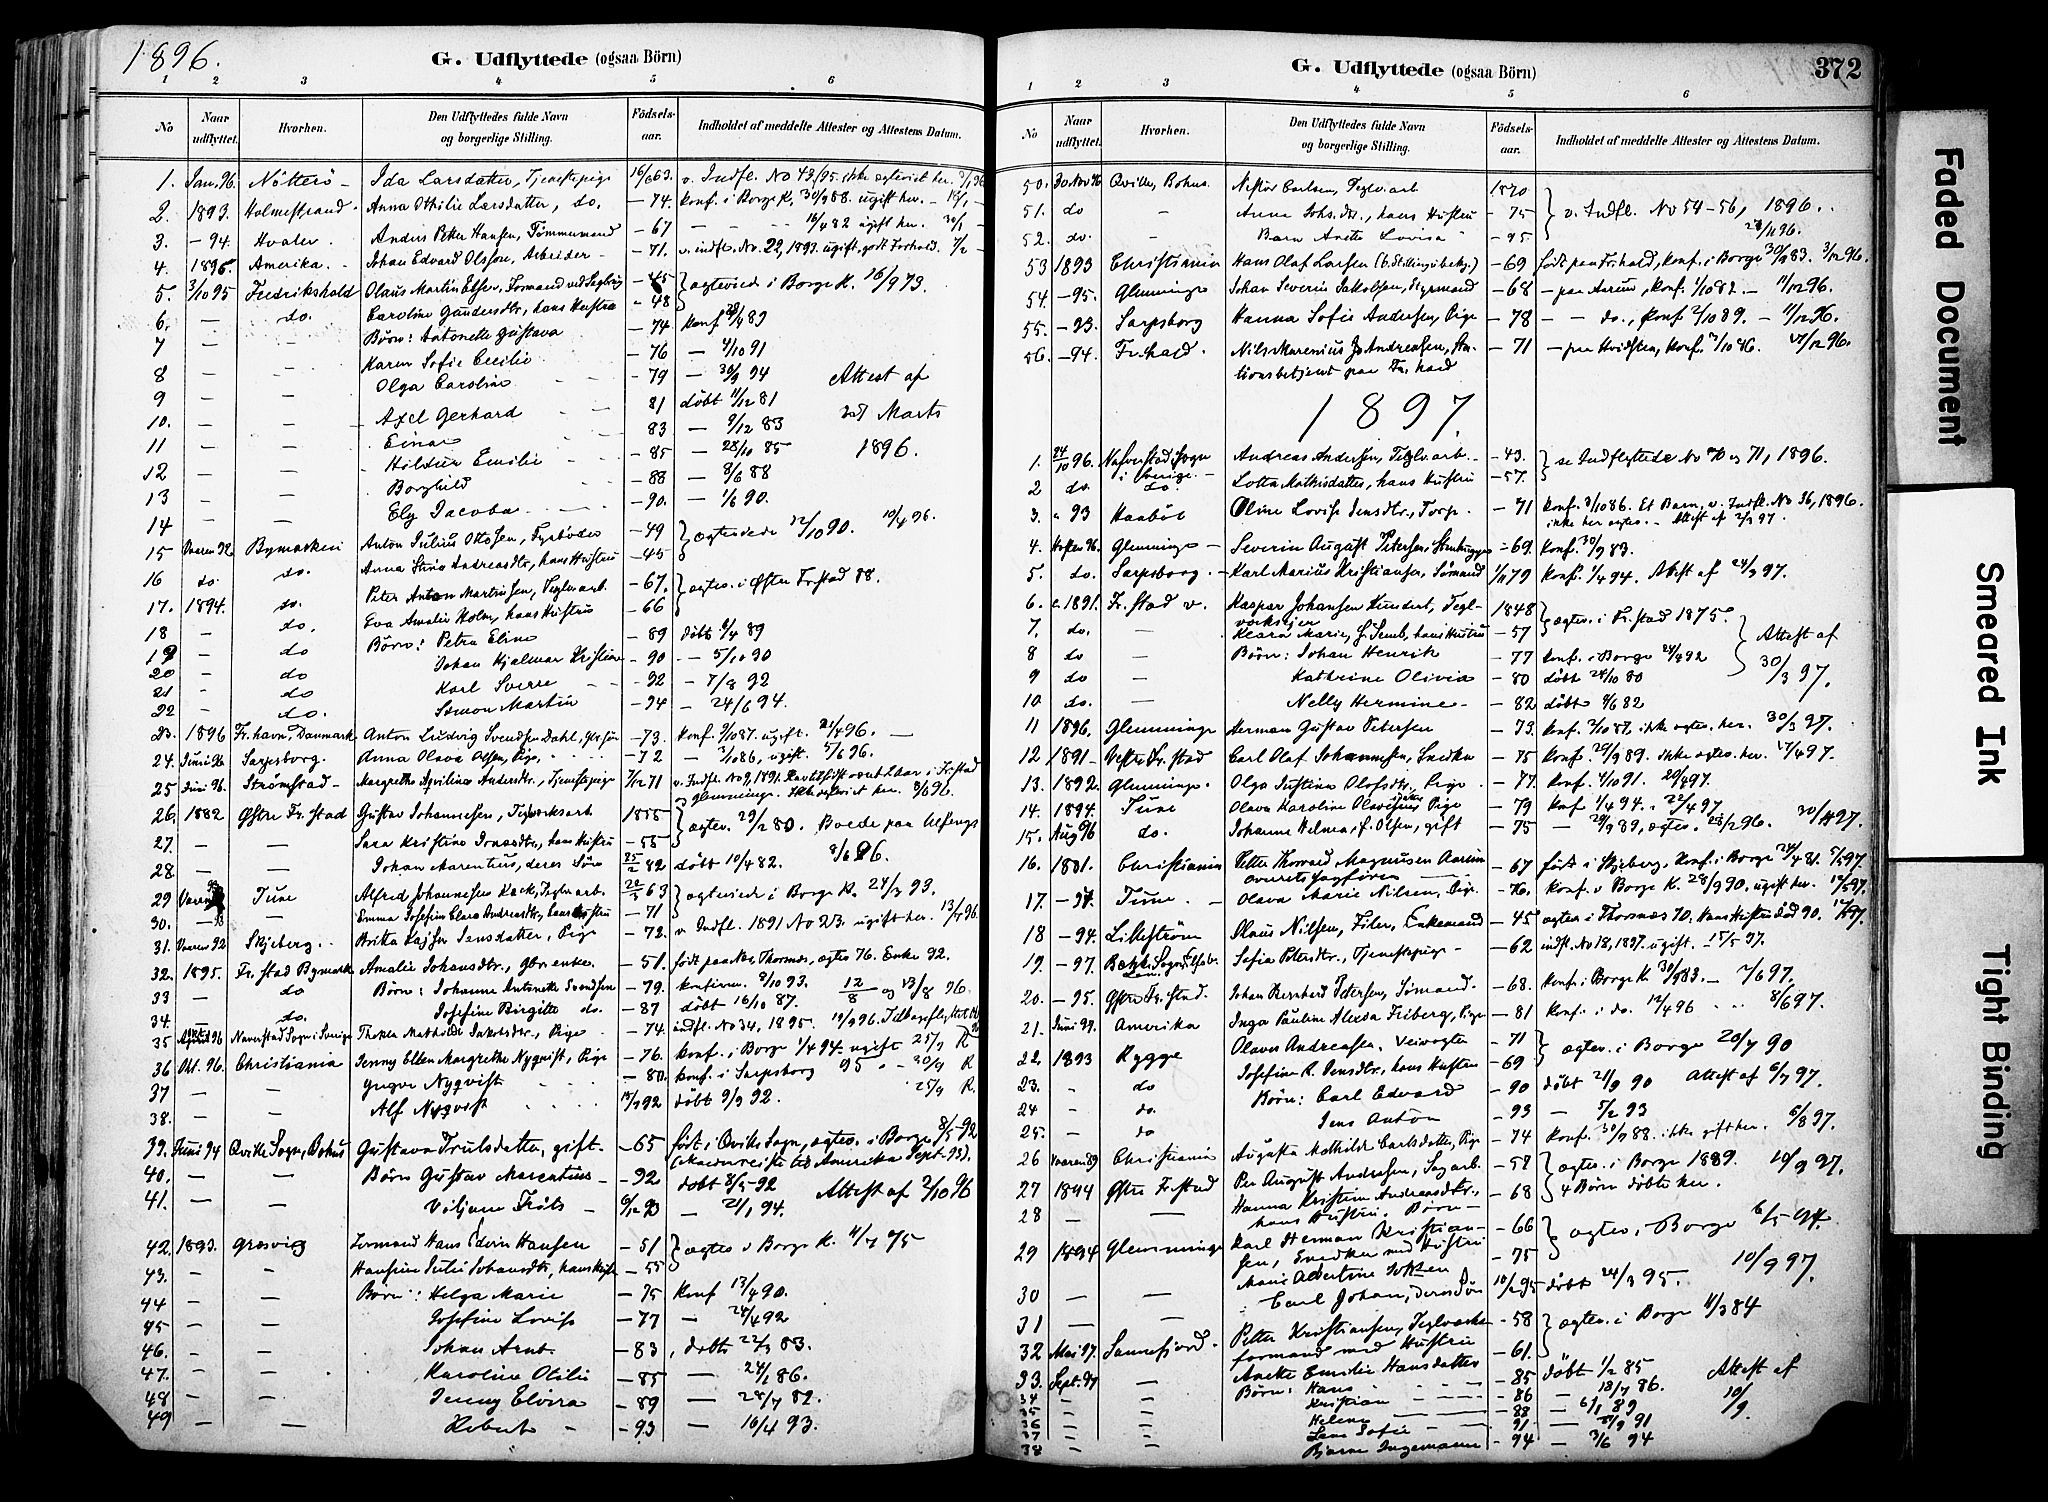 1896.
G. Udflyttede (ogsaa Börn)
1 2 3 4 5 6
No Naar udflyttet. Hvorhen. Den Udflyttedes fulde Navn og borgerlige Stilling. Födsels-aar. Indholdet af meddelte Attester og Attestens Datum.
1. Jan. 96. Nötterö - Ida Larsdatter, Tjenestepige 16/6 63. v. Indfl. No 43/95. ikke egteviet her.
2. 1893. Holmestrand. Anna Othilie Larsdatter, do. - 74. konf. i Borge K. 30/9 88 ugift her.
3. - 94. Hvaler. Anders Petter Hansen, Tømmermand - 67 - 16/4 82 ugift her. 30/1 -
4. 1895. Amerika. - Johan Edvard Olsson, Arbeider - 71. v. indfl. No. 22, 1893. ugift, godt Forhold. 7/2 -
5. 3/10 95 Fredrikshald Olaus Martin Elsen, Formand ved Teglbrug - 45 } egteviede i Borge K. 16/9 73.
6. - do. Caroline Gundersdtr, hans Hustru - 48
7 - - Børn: Antonette Gustava - 74 konf 29/9 89
8 - - Karen Sofie Cecilie - 76 - 4/10 91
9 - - Olga Caroline - 79 - 30/9 94 Attest af
10. - - Axel Gerhard 81 døbt 11/12 81 Marts
11 - - Einar 83 - 9/12 83 1896.
12 - - Hildur Emilie - 85 - 28/10 85
13 - - Borghild - 88 - 8/6 88
14 - - Ely Jacoba - 90. - 1/6 90.
15 Vaaren 92. Bymarken Anton Julius Ottosen, Fyrbøder - 49 } egteviede 12/10 90. 10/4 96.
16 do. do. Anna Andreasdtr, hans Hustru - 45
17. 1894. do. Peter Anton Martinsen, Teglv.arb. - 67. } egtev. i Østre Fr.stad 88.
18 - do. Eva Amalie Holm, hans Hustru - 66
19 - do Børn: Petra Eline - 89 døbt 6/4 89
20 - do Johan Hjalmar Kristian - 90 - 5/10 90
21 - do Karl Sverre - 92 - 7/8 92
22 - do. Simon Martin - 94 - 24/6 94.
23. 1896 Fr.havn, Danmark Anton Ludvig Svendsen Dahl, - 73. konf. 9/10 87. ugift. 21/4 96.
24. Juni 96 Sarpsborg. Anna Olava Olsen, Pige. - 72 - 3/10 86, ugift. 5/6 96.
25 Juni 96. Strömstad - Margrethe Andersdtr, Tjenestepige 7/12 71 v. Indfl. No 9, 1891. i Fr.stad
Glemminge. Ikke egteviet her. 8/6 96.
26. 1882 Østre Fr.stad Gustav Johannesen, Teglverksarb. 1855 } egtev. 29/2 80. Boede paa
27. - - Sara Kristine Jonasdtr, hans Hustru - 55
28. - - Johan Marentius, deres Søn 25/2 82 døbt 10/4 82. 8/6 96.
29 Vaaren Tune Alfred Johannesen Kack, Teglv.arb. 22/5 63 } egteviede i Borge K. 24/9 93.
30. - - Emma Josefine Clara Andreasdtr, hans Hustru - 71
31. Vaaren 92 Skjeberg. Britta Kajsa Jensdatter, Pige - 72. v. Indfl. 1891 No 213. ugift her. 13/7 96.
32. 1895. Fr.stad Bymark Amalie Johansdtr, enke. - 51. født paa Thorsnes, egtev. 76. Enke 92.
33 - do Børn: Johanne Antonette Svendsen - 79. konfirm. 8/10 93. 12/8 og 13/8 96.
34. - do. Josefine Birgitte do. - 87 døbt 16/10 87.
35 August 96 Naverstad Sogn i Sverige Thekla Mathilde Jakobsdtr, Pige - 74. indfl. No 34, 1895. Tilbageflyttet
36 Okt. 96. Christiania Jenny Ellen Margrethe Nyqvist, Pige - 76. konf. i Borge 1/4 94. ugift 25/9 R
37 - - Yngve Nyqvist - 80. konf. i Sarpsborg 95 - 30/9 R
38. - - Alf Nyqvist 15/7 92 døbt 9/9 92. 25/9 R.
39. Juni 94 Qville Sogn, Bohus Gustava Trulsdatter, gift. - 65 født i Qville Sogn, egtev. i Borge 8/5 92
(Manden reiste til Amerika Sept. 93).
40. - - Børn Gustav Marentius - 92 døbt 8/5 92
41. - - Viljam Trøls - 6/12 93 - 21/1 94. Attest af 2/10 96
42. 1893. Græsvig Formand Hans Edvin Hansen - 51 } egtev. i Borge K. 11/7 75
43. - - Hansine Julie Johansdtr, hans Hustru - 55
44 - - Børn: Helga Marie - 75 konf 13/4 90.
45 - - Josefine Lovise - 77 - 24/4 92
46. - - Johan Arnt - 83 døbt 22/7 83.
47. - - Karoline Otilie - 85 - 24/1 86.
48 - - Jenny Elvira - 89 - 28/7 89.
49 - - Robert - 93 - 16/4 93.
G. Udflyttede (ogsaa Börn) 372
1 2 3 4 5 6
No Naar udflyttet. Hvorhen. Den Udflyttedes fulde Navn og borgerlige Stilling. Födsels-aar. Indholdet af meddelte Attester og Attestens Datum.
50. 30 Nov 96 Qville, Bohus. Nestor Carlsen, Teglv.arb 1870 } v. Indfl. No 54-56, 1896.
51. do - Anna Johs.dtr, hans Hustru - 75
52. do. - Barn Anette Lovisa - 95 28/11 96.
53 1893 Christiania Hans Olaf Larsen (Stilling ubekj.) - 69 født paa Fr.hald, konf. i Borge 30/9 83. 3/12 96.
54. - 95. Glemminge Johan Severin Jakobsen, Styrmand - 68 - paa Aarum, konf. 1/10 82 - 11/12 96.
55. - 93. Sarpsborg Hanna Sofie Andersen, Pige - 78 - - do., konf. 2/10 89. - 11/12 96.
56. - 94. Fr.hald. Nils Marenius Andreasen, Sta- - 71 - paa Hvidsten, konf.
tionsbetjent paa Fr.hald
1897.
1. 24/10 96. Naverstad Sogn i Sverige. Andreas Andersen, Teglv.arb. - 43. } se Indflyttede No 70 og 71, 1896.
2 do. do. Lotta Mathisdatter, hans Hustru - 57.
3. 93 Haabøl Oline Lovise Jensdtr, Torp. - 71 konf. 3/10 86. Et Barn, v. Indfl. No 36, 1896.
ikke her egtev. - Attest af 2/3 97.
4. Høsten 96. Glemminge - Severin August Petersen, Stenhugger - 69. konf. 30/9 83.
5. do. Sarpsborg. - Karl Marius Kristiansen, Sømand 1/11 79 konf. 1/4 94. Attest af 24/3 97.
6. 1891. Fr.stad v. Kaspar Johansen Hundert, Tegl- 1848 } egtev. i Fr.stad 1875.
værkseier
7. do. - Klara Marie, f. Semb, hans Hustru - 57 Attest af
8 do - Børn: Johan Henrik - 77 konf. i Borge 24/4 92 30/3 97.
9 do - Kathrine Olivia - 80 døbt 24/10 80
10. do. - Nelly Hermine - 82 døbt 4/6 82
11 1896. Glemminge Herman Gustav Petersen - 73. konf. 2/10 87. ikke egtev. her. 30/3 97.
12 1891. Vestre Fr.stad Carl Olaf Johannesen, Snedker - 75 konf. 29/9 89. ikke egtev. her.
13. 1892. Glemminge. Olga Justina Olofsdtr, Pige - 77. konf. 4/10 91. 20/4 97.
14. 1894. Tune Olava Karoline Pige - 79 konf 1/4 94. 22/4 97.
15. Aug 96 do. Johanne Helma, f. Olsen, gift - 75 - 29/9 89, egtev. 23/2 96. 30/4 97.
16. 1881. Christiania Petter Thorvard Magnussen Aarum - 67 født i Skjeberg, konf. i Borge 24/4 81. 5/5 97.
overretssagfører
17. - 94. Tune. - Olava Marie Nilsen, Pige. - 76. konf. v Borge K. 28/9 90. ugift her. 12/5 97.
18 - 94. Lillestrøm Olaus Nilsen, Filer, Enkemand - 45 egtev. i Thorsnæs 70, Hans Hustru død 90.
19. - 97. Sofia Petersdtr, Tjenestepige - - 62 indfl. No 18, 1897. ugift. - 15/5 97.
20. - 95. Østre Fr.stad. Johan Bernhard Petersen, Sømand. - 68. konf. i Borge K. 30/9 83. - 2/6 97.
21. Juni 97. Amerika Inga Pauline Alexa Friberg, Pige - 81 konf. i do. 12/4 96 8/6 97.
22. 1893 Rygge Olaves Andreassen, Veivogter - 71 } egtev. i Borge 20/7 90
23. - do Josefine R. Jensdtr, hans Hustru - 69
24 - do. Børn: Carl Edvard - 90 døbt 21/9 90 Attest af 6/7 97.
25. - do Jens Anton - 93 - 5/2 93
26 Vaaren 89 Christiania Augusta Mathilde Carlsdatter, Pige - 74 konf. 30/9 88. ikke gift her. 6/8 97.
27 1894 Østre Fr.stad Per August Andersen, Sagarb. - 57 } egtev. i Borge 1889. 10/9 97.
28 - - Hanna Kristine Andreasdtr, - 68 4 Børn døbte her.
hans Hustru. Børn -
29 1894 Glemminge Karl Herman Kristian- - 66 } egtev. i Borge 6/5 94.
sen, Snedker med Hustru
Marie Albertine - 75 10/9 97.
30 - - Carl Johan, deres Søn 10/2 95 døbt 24/3 95.
31 - - Petter Kristiansen, Teglværks- - 58 } egtev. i Borge 11/3 84
32 Mai 97. Sannefjord. formand med Hustru - 61.
33. Sept. 97 - Anette Emilie Hansdatter
Børn: Hans - 85 døbt 1/2 85 Attest af
34 - - Kristian - 86 - 18/7 86. 10/9.
35 - - Helene - 88 - 6/1 89
36 - - Lene Sofie - 91 - 91
37 - - Bjarne Ingemann - 94 - 3/6 94
38 - -
Faded Document
Smeared Ink
Tight Binding